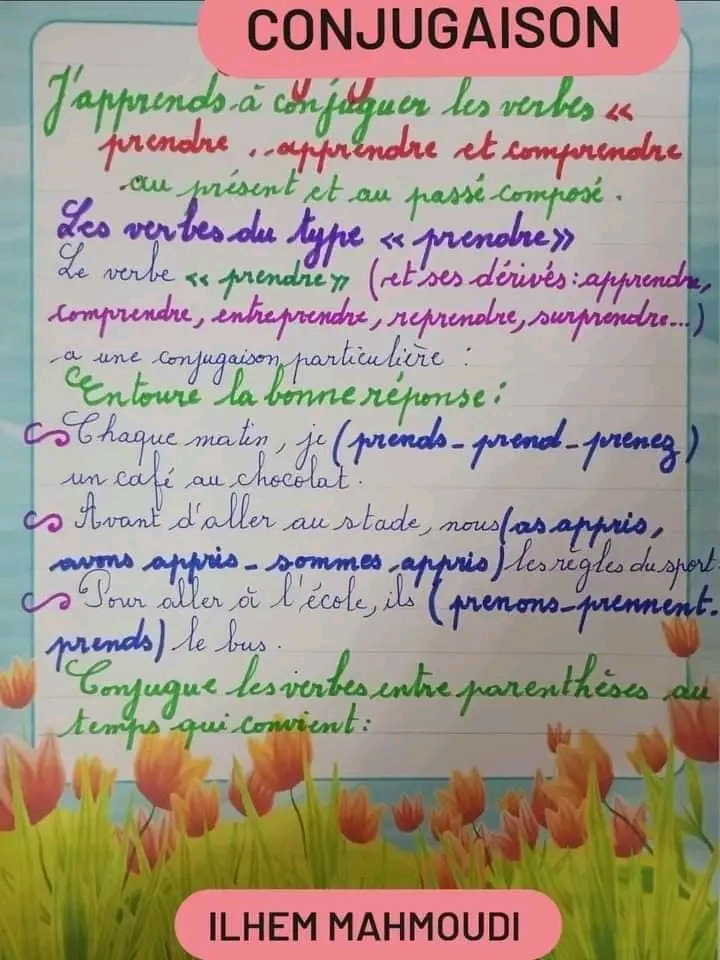 CONJUGAISON
J'apprends à conjuguer les verbes «
prendre , apprendre et comprendre
au présent et au passé composé .
Les verbes du type « prendre »
Le verbe « prendre » (et ses dérivés : apprendre,
comprendre, entreprendre, reprendre, surprendre...)
a une conjugaison particulière :
Entoure la bonne réponse :
Chaque matin, je (prends - prend - prenez)
un café au chocolat .
Avant d'aller au stade, nous (as appris,
avons appris - sommes appris) les règles du sport.
Pour aller à l'école, ils (prenons - prennent -
prends) le bus .
Conjugue les verbes entre parenthèses au
temps qui convient :
ILHEM MAHMOUDI